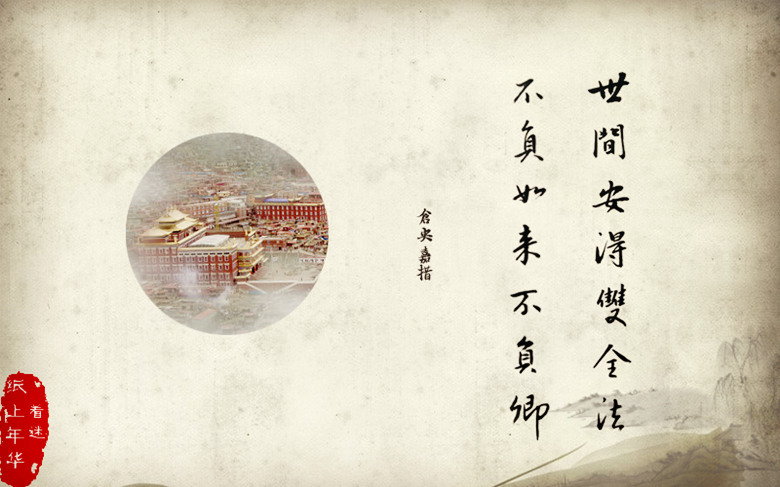 世間安得雙全法
不負如来不負卿
倉央嘉措
纸上年华
看迷